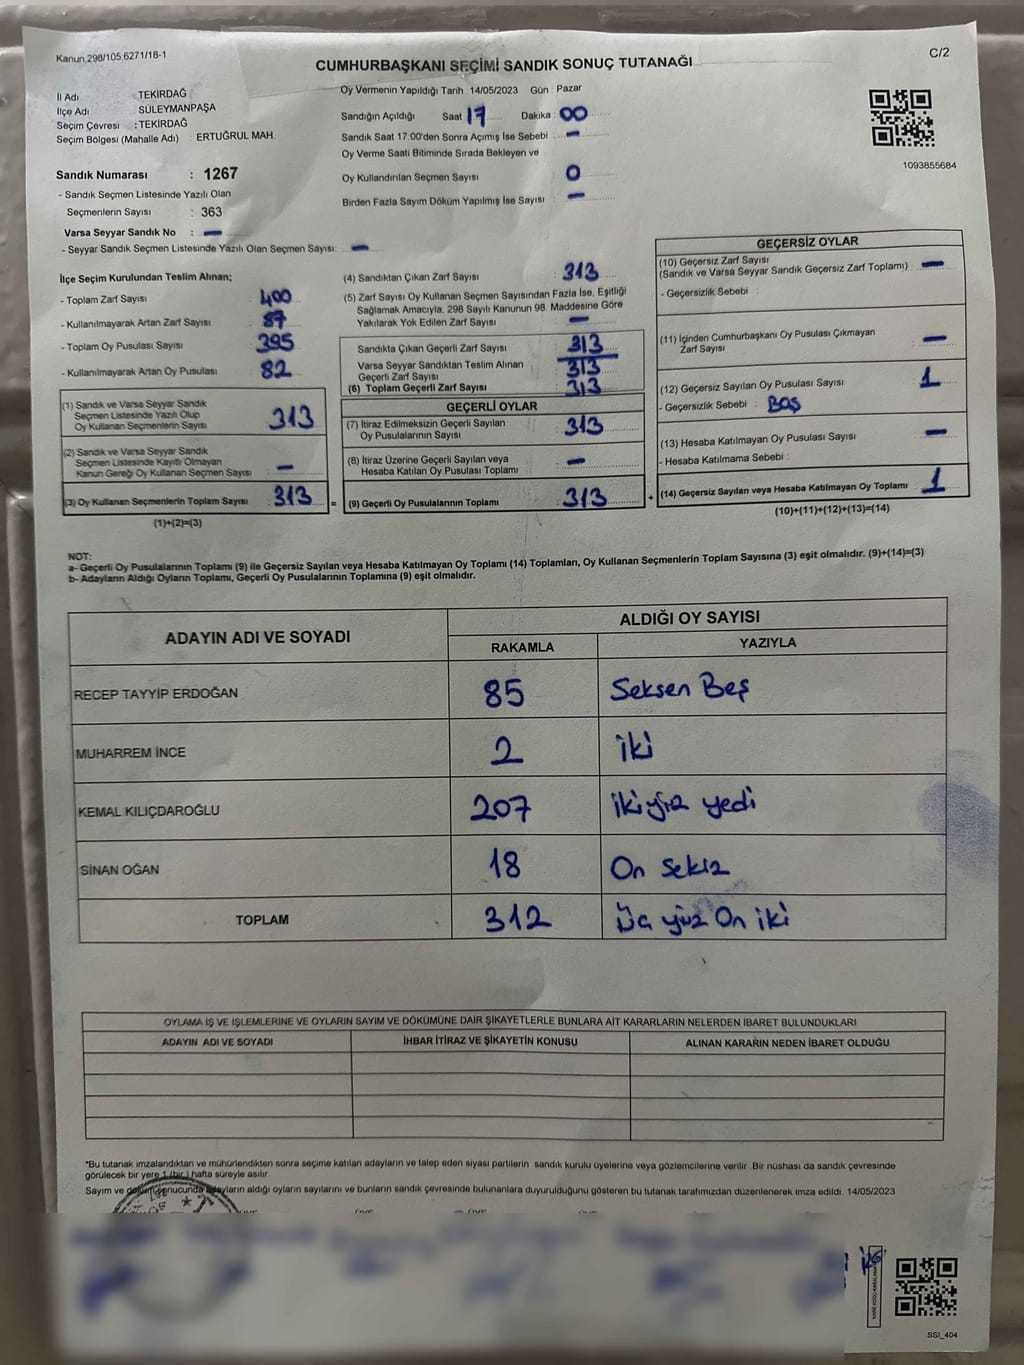 Kanun,298/105.6271/18-1
C/2
CUMHURBAŞKANI SEÇİMİ SANDIK SONUÇ TUTANAĞI
İl Adı TEKİRDAĞ
İlçe Adı SÜLEYMANPAŞA
Seçim Çevresi : TEKİRDAĞ
Seçim Bölgesi (Mahalle Adı) ERTUĞRUL MAH.
Sandık Numarası : 1267
- Sandık Seçmen Listesinde Yazılı Olan
Seçmenlerin Sayısı : 363
Varsa Seyyar Sandık No : -
- Seyyar Sandık Seçmen Listesinde Yazılı Olan Seçmen Sayısı: -
Oy Vermenin Yapıldığı Tarih : 14/05/2023 Gün : Pazar
Sandığın Açıldığı Saat 17 Dakika : 00
Sandık Saat 17:00'den Sonra Açımış İse Sebebi : -
Oy Verme Saati Bitiminde Sırada Bekleyen ve
Oy Kullandırılan Seçmen Sayısı : 0
Birden Fazla Sayım Döküm Yapılmış İse Sayısı : -
1093855684
İlçe Seçim Kurulundan Teslim Alınan;
- Toplam Zarf Sayısı : 400
- Kullanılmayarak Artan Zarf Sayısı : 87
- Toplam Oy Pusulası Sayısı : 395
- Kullanılmayarak Artan Oy Pusulası : 82
(1) Sandık ve Varsa Seyyar Sandık
Seçmen Listesinde Yazılı Olup
Oy Kullanan Seçmenlerin Sayısı : 313
(2) Sandık ve Varsa Seyyar Sandık
Seçmen Listesinde Kayıtlı Olmayan
Kanun Gereği Oy Kullanan Seçmen Sayısı : -
(3) Oy Kullanan Seçmenlerin Toplam Sayısı : 313
(1)+(2)=(3)
=
(4) Sandıktan Çıkan Zarf Sayısı : 313
(5) Zarf Sayısı Oy Kullanan Seçmen Sayısından Fazla İse, Eşitliği
Sağlamak Amacıyla, 298 Sayılı Kanunun 98. Maddesine Göre
Yakılarak Yok Edilen Zarf Sayısı : -
Sandıkta Çıkan Geçerli Zarf Sayısı : 313
Varsa Seyyar Sandıktan Teslim Alınan
Geçerli Zarf Sayısı : 313
(6) Toplam Geçerli Zarf Sayısı : 313
GEÇERLİ OYLAR
(7) İtiraz Edilmeksizin Geçerli Sayılan
Oy Pusulalarının Sayısı : 313
(8) İtiraz Üzerine Geçerli Sayılan veya
Hesaba Katılan Oy Pusulası Toplamı : -
(9) Geçerli Oy Pusulalarının Toplamı : 313
+
GEÇERSİZ OYLAR
(10) Geçersiz Zarf Sayısı
(Sandık ve Varsa Seyyar Sandık Geçersiz Zarf Toplamı) : -
- Geçersizlik Sebebi :
(11) İçinden Cumhurbaşkanı Oy Pusulası Çıkmayan
Zarf Sayısı : -
(12) Geçersiz Sayılan Oy Pusulası Sayısı : 1
- Geçersizlik Sebebi : BOŞ
(13) Hesaba Katılmayan Oy Pusulası Sayısı : -
- Hesaba Katılmama Sebebi :
(14) Geçersiz Sayılan veya Hesaba Katılmayan Oy Toplamı : 1
(10)+(11)+(12)+(13)=(14)
NOT:
a- Geçerli Oy Pusulalarının Toplamı (9) ile Geçersiz Sayılan veya Hesaba Katılmayan Oy Toplamı (14) Toplamları, Oy Kullanan Seçmenlerin Toplam Sayısına (3) eşit olmalıdır. (9)+(14)=(3)
b- Adayların Aldığı Oyların Toplamı, Geçerli Oy Pusulalarının Toplamına (9) eşit olmalıdır.
ADAYIN ADI VE SOYADI ALDIĞI OY SAYISI
RAKAMLA YAZIYLA
RECEP TAYYİP ERDOĞAN 85 Seksen Beş
MUHARREM İNCE 2 iki
KEMAL KILIÇDAROĞLU 207 ikiyüz yedi
SİNAN OĞAN 18 On Sekiz
TOPLAM 312 Üç yüz On iki
OYLAMA İŞ VE İŞLEMLERİNE VE OYLARIN SAYIM VE DÖKÜMÜNE DAİR ŞİKAYETLERLE BUNLARA AİT KARARLARIN NELERDEN İBARET BULUNDUKLARI
ADAYIN ADI VE SOYADI İHBAR İTİRAZ VE ŞİKAYETİN KONUSU ALINAN KARARIN NEDEN İBARET OLDUĞU
*Bu tutanak imzalandıktan ve mühürlendikten sonra seçime katılan adayların ve talep eden siyasi partilerin sandık kurulu üyelerine veya gözlemcilerine verilir. Bir nüshası da sandık çevresinde
görülecek bir yere 1 (bir ) hafta süreyle asılır.
Sayım ve döküm sonucunda adayların aldığı oyların sayılarını ve bunların sandık çevresinde bulunanlara duyurulduğunu gösteren bu tutanak tarafımızdan düzenlenerek imza edildi. 14/05/2023
SSI_404